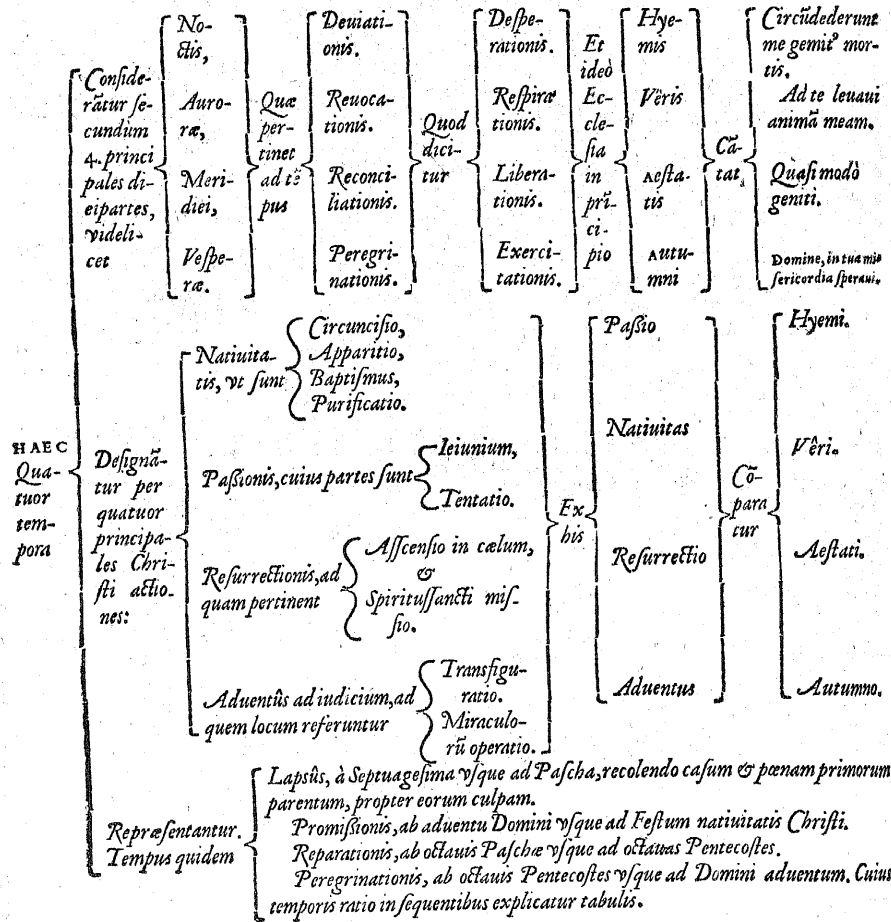 HAEC
Qua-
tuor
tem-
pora
Conside-
rātur se-
cundum
4. princi
pales di-
ei partes,
videli-
cet
No-
ctis,
Auro-
ræ,
Meri-
diei,
Vespe-
ræ.
Quæ
per-
tinet
ad tē
pus
Deuiati-
onis.
Reuoca-
tionis.
Reconci-
liationis.
Peregri-
nationis.
Quod
dici-
tur
Despe-
rationis.
Respira
tionis.
Libera-
tionis.
Exerci-
tationis.
Et
ideò
Ec-
cle-
sia
in
prī-
ci-
pio
Hye-
mis
Vêris
Aesta-
tis
Autu-
mni
Cā-
tat
Circūdederunt
me gemitꝰ mor-
tis.
Ad te leuaui
animā meam.
Quasi modò
geniti.
Domine, in tua mi-
sericordia speraui.
Designā-
tur per
quatuor
principa-
les Chri-
sti actio-
nes:
Natiuita-
tis, vt sunt
Circuncisio,
Apparitio,
Baptismus,
Purificatio.
Passionis, cuius partes sunt
Ieiunium,
Tentatio.
Resurrectionis, ad
quam pertinent
Asscensio in cælum,
&
Spiritussancti mis-
sio.
Aduentûs ad iudicium, ad
quem locum referuntur
Transfigu-
ratio.
Miraculo-
rū operatio.
Ex
his
Passio
Natiuitas
Resurrectio
Aduentus
Cō-
para
tur
Hyemi.
Vêri.
Aestati.
Autumno.
Repræsentantur.
Tempus quidem
Lapsûs, à Septuagesima vsque ad Pascha, recolendo casum & pœnam primorum
parentum, propter eorum culpam.
Promissionis, ab aduentu Domini vsque ad Festum natiuitatis Christi.
Reparationis, ab octauis Paschæ vsque ad octauas Pentecostes.
Peregrinationis, ab octauis Pentecostes vsque ad Domini aduentum. Cuius
temporis ratio in sequentibus explicatur tabulis.